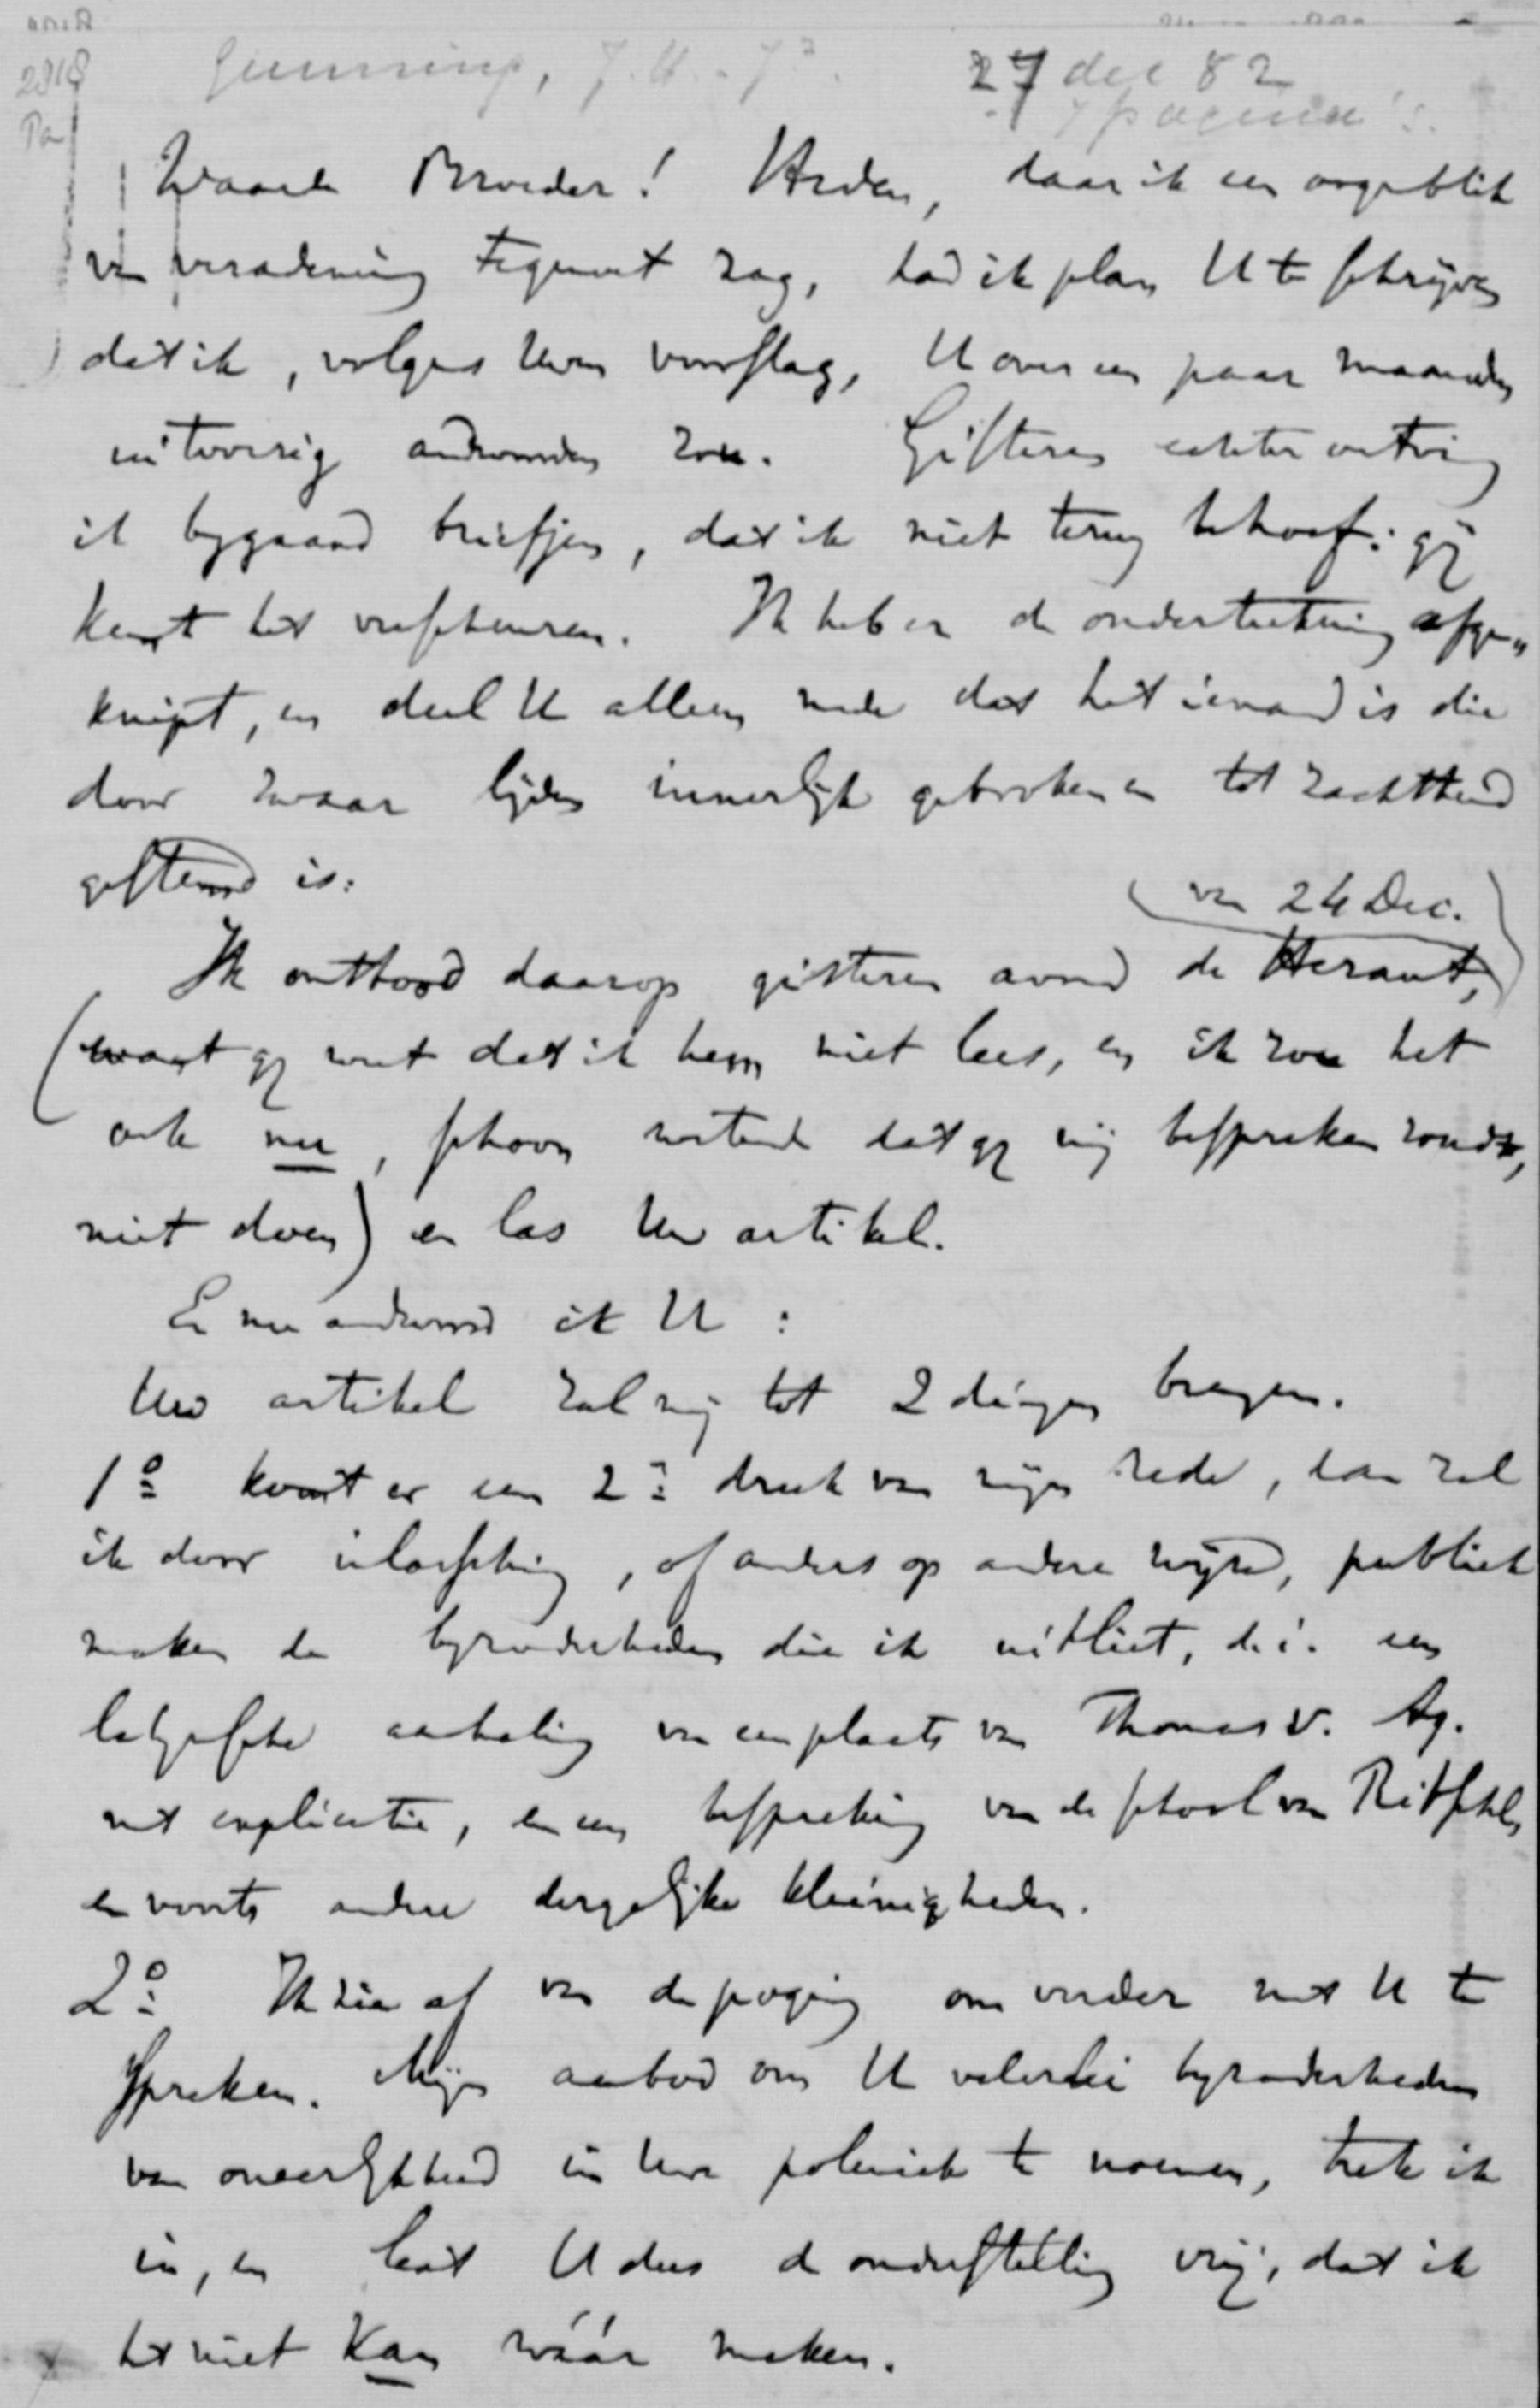 2918
Pa
Gunning, J.H. Jr.
27 dec 82
4 pagina's.
Waarde Broeder! Heden, daar ik een oogenblik
van verademing tegemoet zag, had ik plan U te schrijven
dat ik, volgens Uwen voorslag, U over een paar maanden
uitvoerig antwoorden zou. Gisteren echter ontving
ik bijgaand briefjen, dat ik niet terug behoef: gij
kunt het verscheuren. Ik heb er de onderteekening afge„
knipt, en deel U alleen mede dat het iemand is die
door zwaar lijden innerlijk gebroken en tot zachtheid
gestemd is.
(van 24 Dec.)
Ik ontbood daarop gisteren avond de Heraut,
(want gij weet dat ik hem niet lees, en ik zou het
ook nu, schoon wetende dat gij mij bespreken zoudt,
niet doen) en las Uw artikel.
En nu antwoord ik U:
Uw artikel zal mij tot 2 dingen brengen.
1º komt er een 2e druk van mijn rede, dan zal
ik door inlassching, of anders op andere wijze, publiek
maken de bijzonderheden die ik uitliet, d.i. een
letterlijke aanhaling van een plaats van Thomas v. Aq.
met explicatie, en een bespreking van de school van Ritschl,
en voorts andere dergelijke kleinigheden.
2º Ik zie af van de poging om verder met U te
spreken. Mijn aanbod om U velerlei bijzonderheden
van oneerlijkheid in Uwe polemiek te noemen, trek ik
in, en laat U dus de onderstelling vrij, dat ik
het niet kan wáár maken.